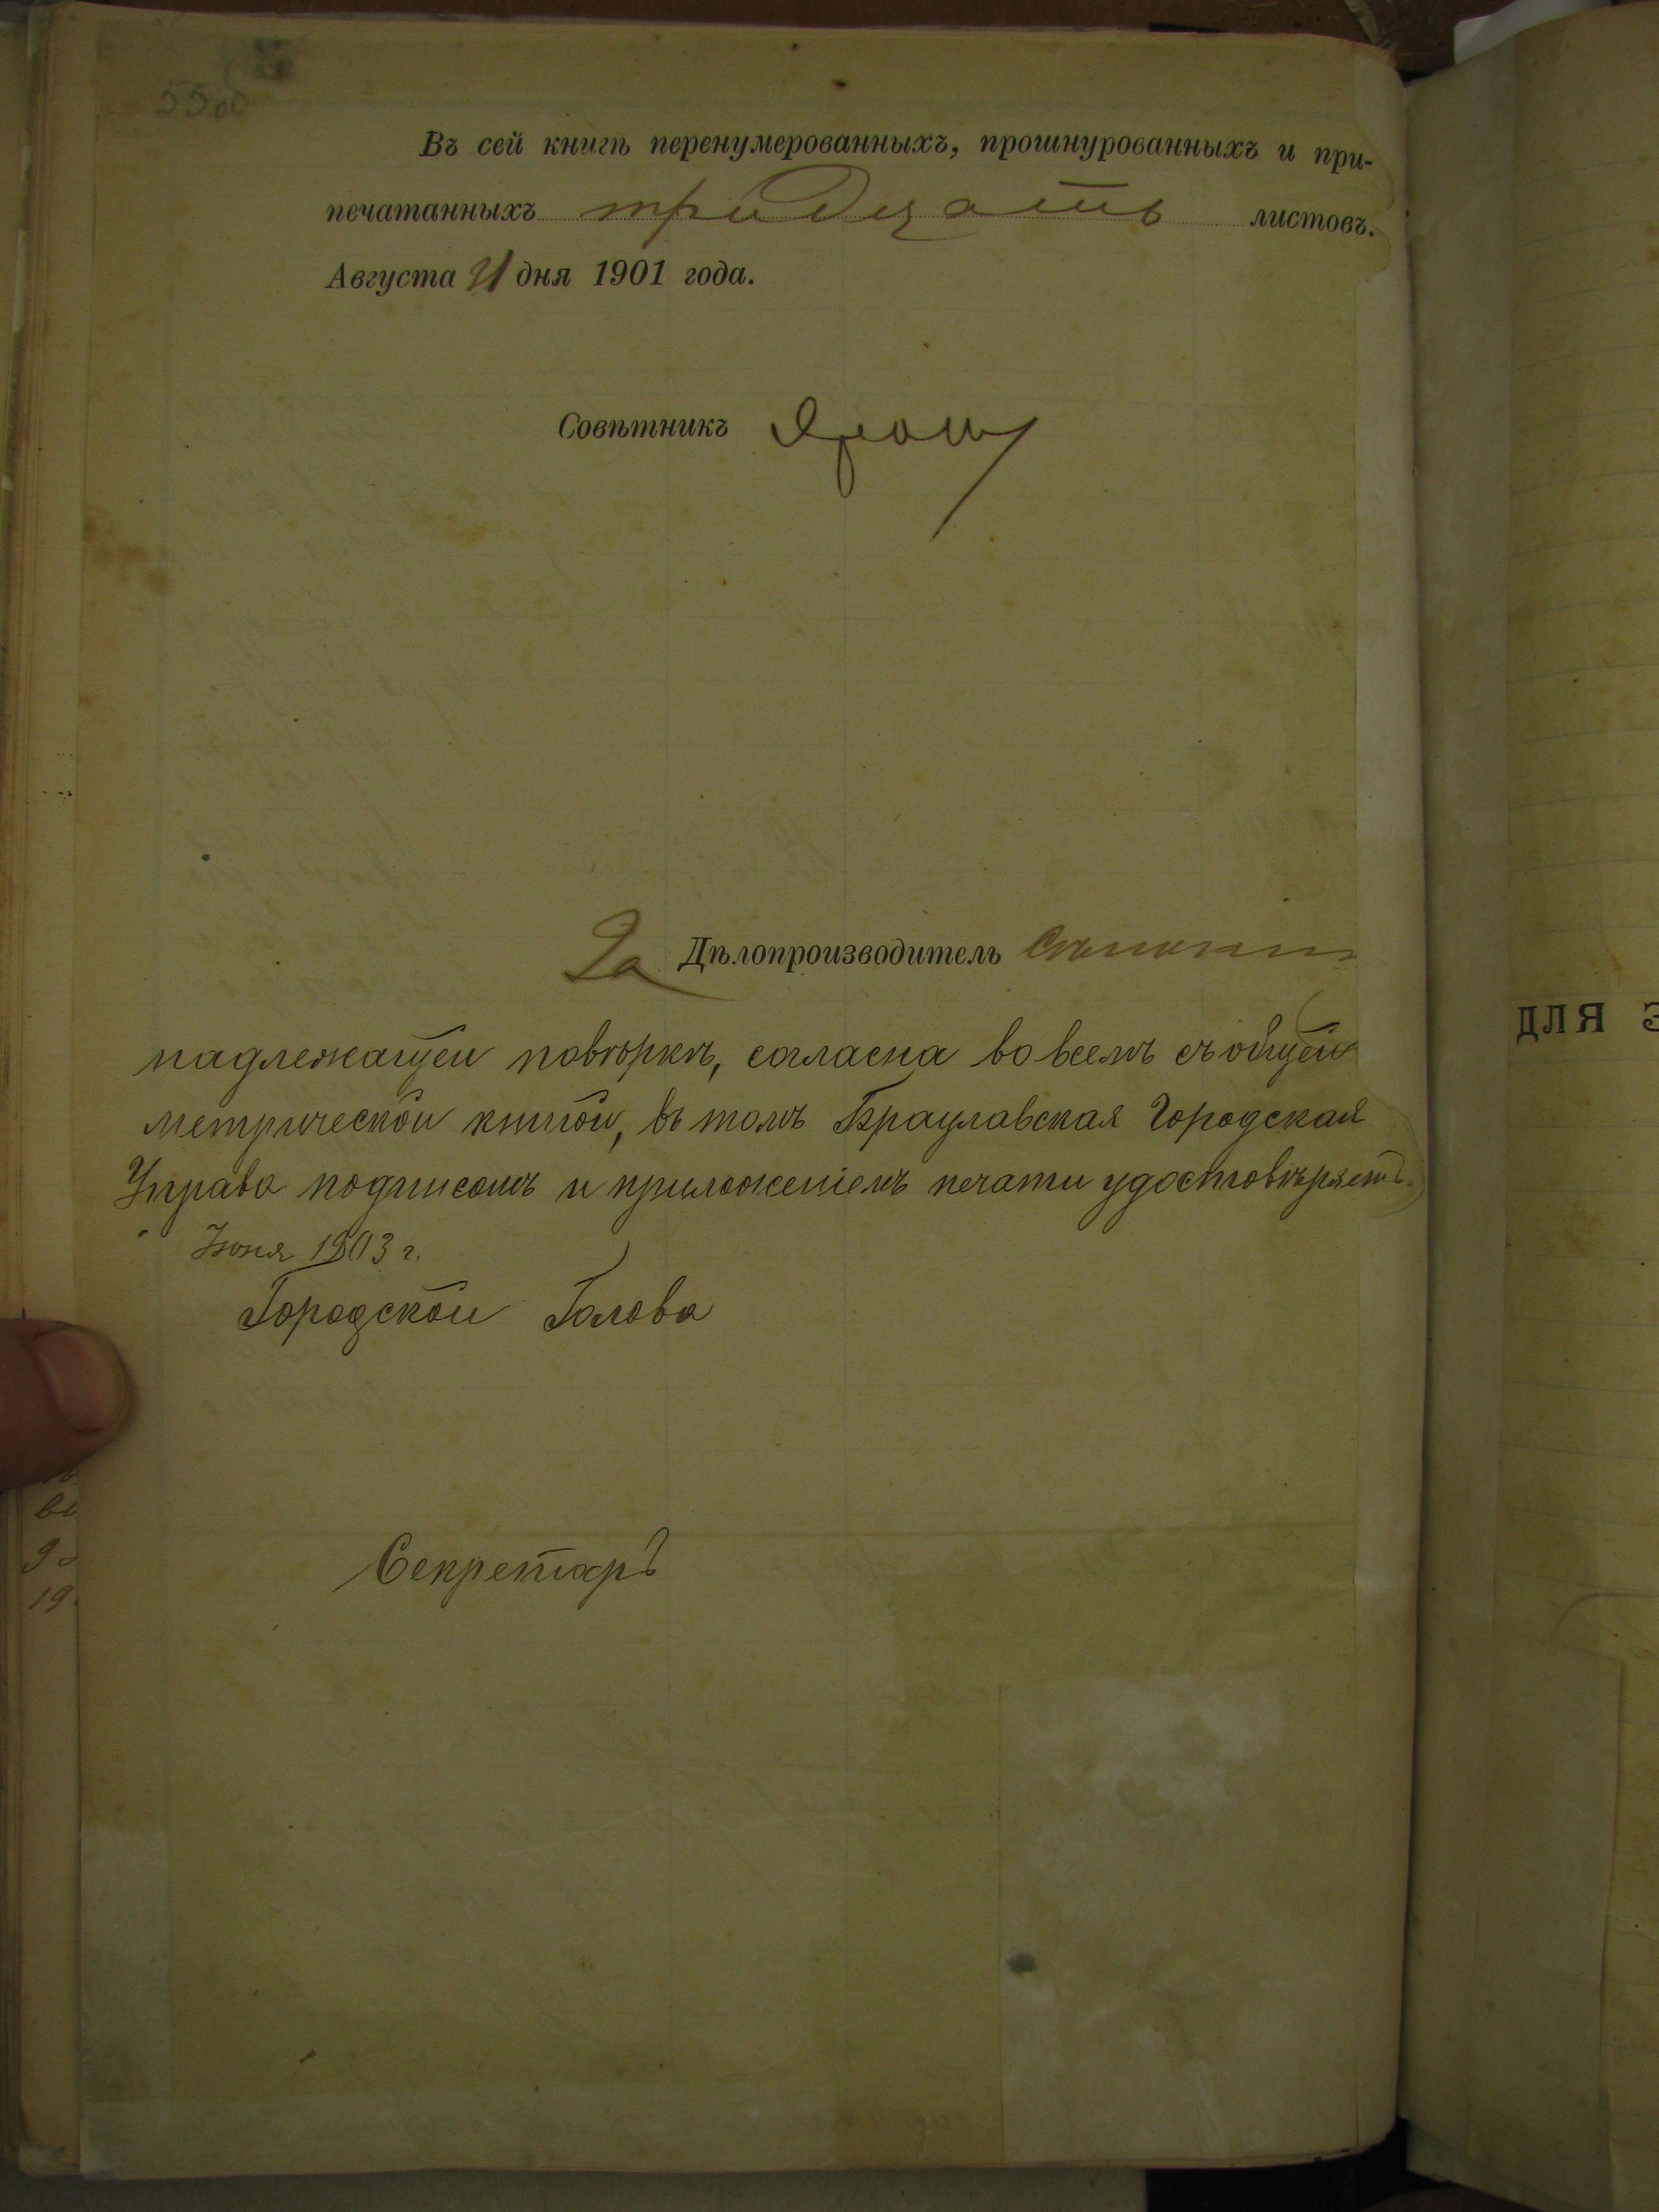 55об
Въ сей книгѣ перенумерованныхъ, прошнурованныхъ и при-
печатанныхъ тридцать листовъ.
Августа 21 дня 1901 года.
Совѣтникъ
За Дѣлопроизводитель
надлежащей повѣркѣ, согласна во всемъ съ общей
метрической книгой, въ томъ Брацлавская Городская
Управа подписомъ и приложеніемъ печати удостовѣряетъ.
Іюня 1903 г.
Городской Голова
Секретарь
ДЛЯ